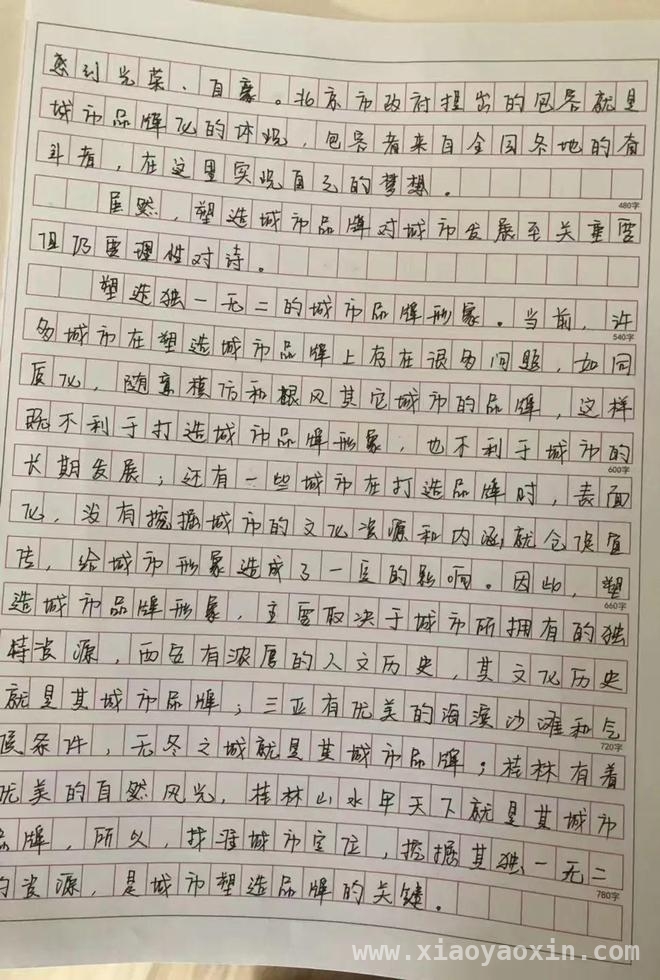 感到光荣、自豪。北京市政府提出的包容就是
城市品牌化的体现，包容着来自全国各地的奋
斗者，在这里实现自己的梦想。
480字
虽然，塑造城市品牌对城市发展至关重要
但仍要理性对待。
塑造独一无二的城市品牌形象。当前，许
540字
多城市在塑造城市品牌上存在很多问题，如同
质化，随意模仿和跟风其它城市的品牌，这样
既不利于打造城市品牌形象，也不利于城市的
600字
长期发展；还有一些城市在打造品牌时，表面
化，没有挖掘城市的文化资源和内涵就仓促宣
传，给城市形象造成了一定的影响。因此，塑
660字
造城市品牌形象，主要取决于城市所拥有的独
特资源，西安有浓厚的人文历史，其文化历史
就是其城市品牌；三亚有优美的海滨沙滩和气
720字
候条件，无冬之城就是其城市品牌；桂林有着
优美的自然风光，桂林山水甲天下就是其城市
品牌，所以，找准城市定位，挖掘其独一无二
780字
的资源，是城市塑造品牌的关键。
www.xiaoyaoxin.com